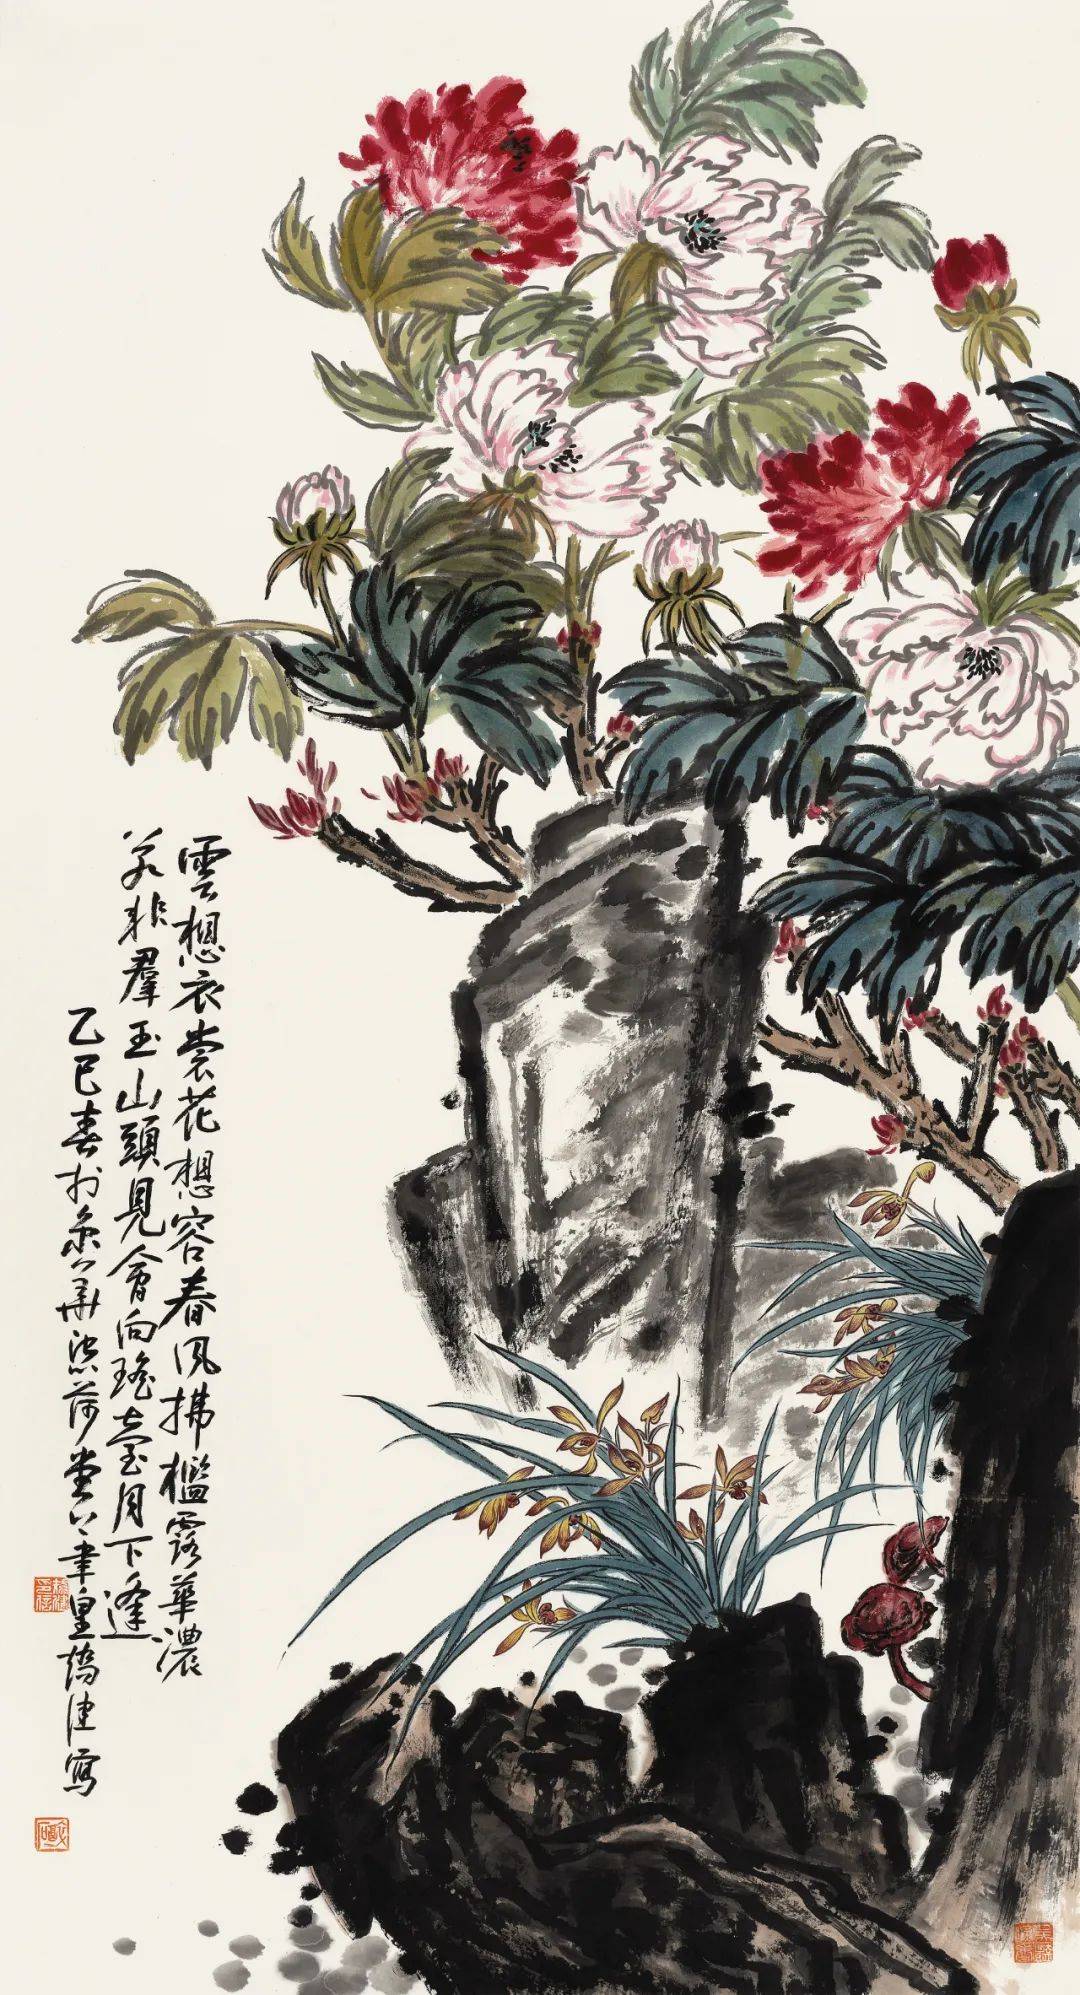 雲想衣裳花想容春風拂檻露華濃
若非羣玉山頭見會向瑤臺月下逢
乙巳春於京華荷堂寫